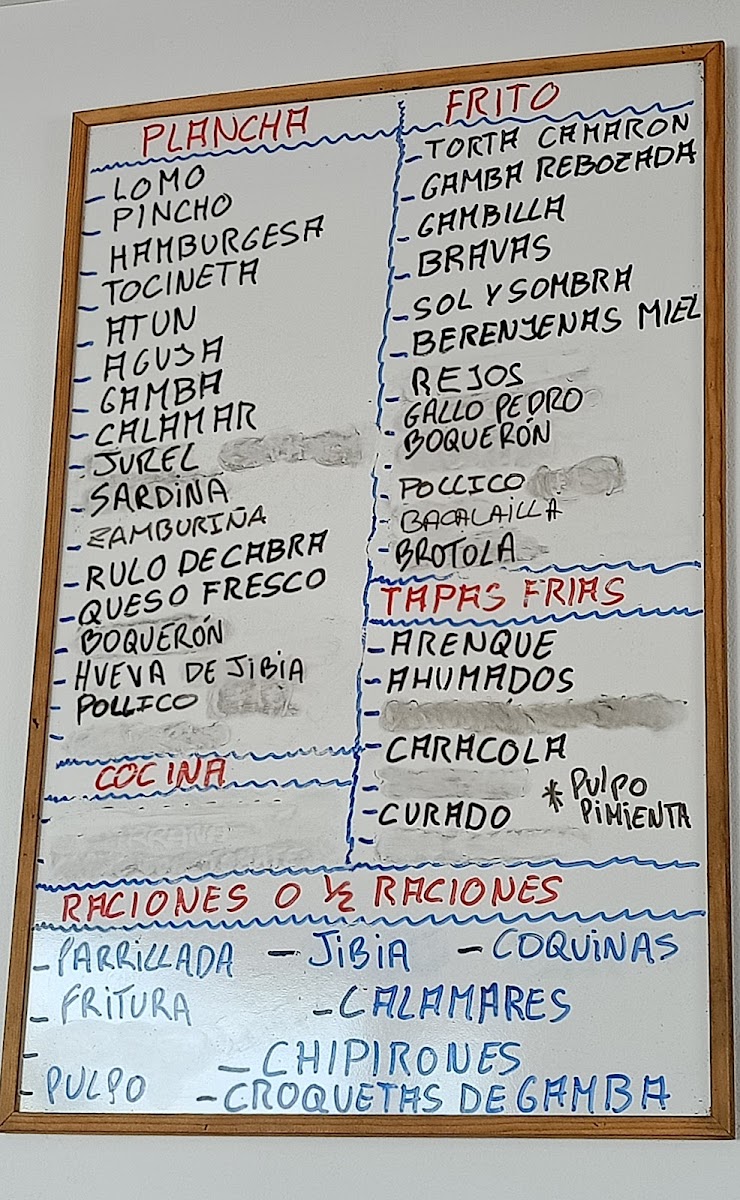 PLANCHA
- LOMO
- PINCHO
- HAMBURGESA
- TOCINETA
- ATUN
- AGUJA
- GAMBA
- CALAMAR
- JUREL
- SARDINA
- ZAMBURIÑA
- RULO DE CABRA
- QUESO FRESCO
- BOQUERÓN
- HUEVA DE JIBIA
- POLLICO
-
COCINA
-
-
FRITO
- TORTA CAMARON
- GAMBA REBOZADA
- GAMBILLA
- BRAVAS
- SOL Y SOMBRA
- BERENJENAS MIEL
- REJOS
- GALLO PEDRO
- BOQUERÓN
- POLLICO
- BACALAILLA
- BROTOLA
TAPAS FRIAS
- ARENQUE
- AHUMADOS
-
- CARACOLA
-
- CURADO
-
* PULPO
PIMIENTA
RACIONES O ½ RACIONES
- PARRILLADA - JIBIA - COQUINAS
- FRITURA - CALAMARES
- - CHIPIRONES
- PULPO - CROQUETAS DE GAMBA